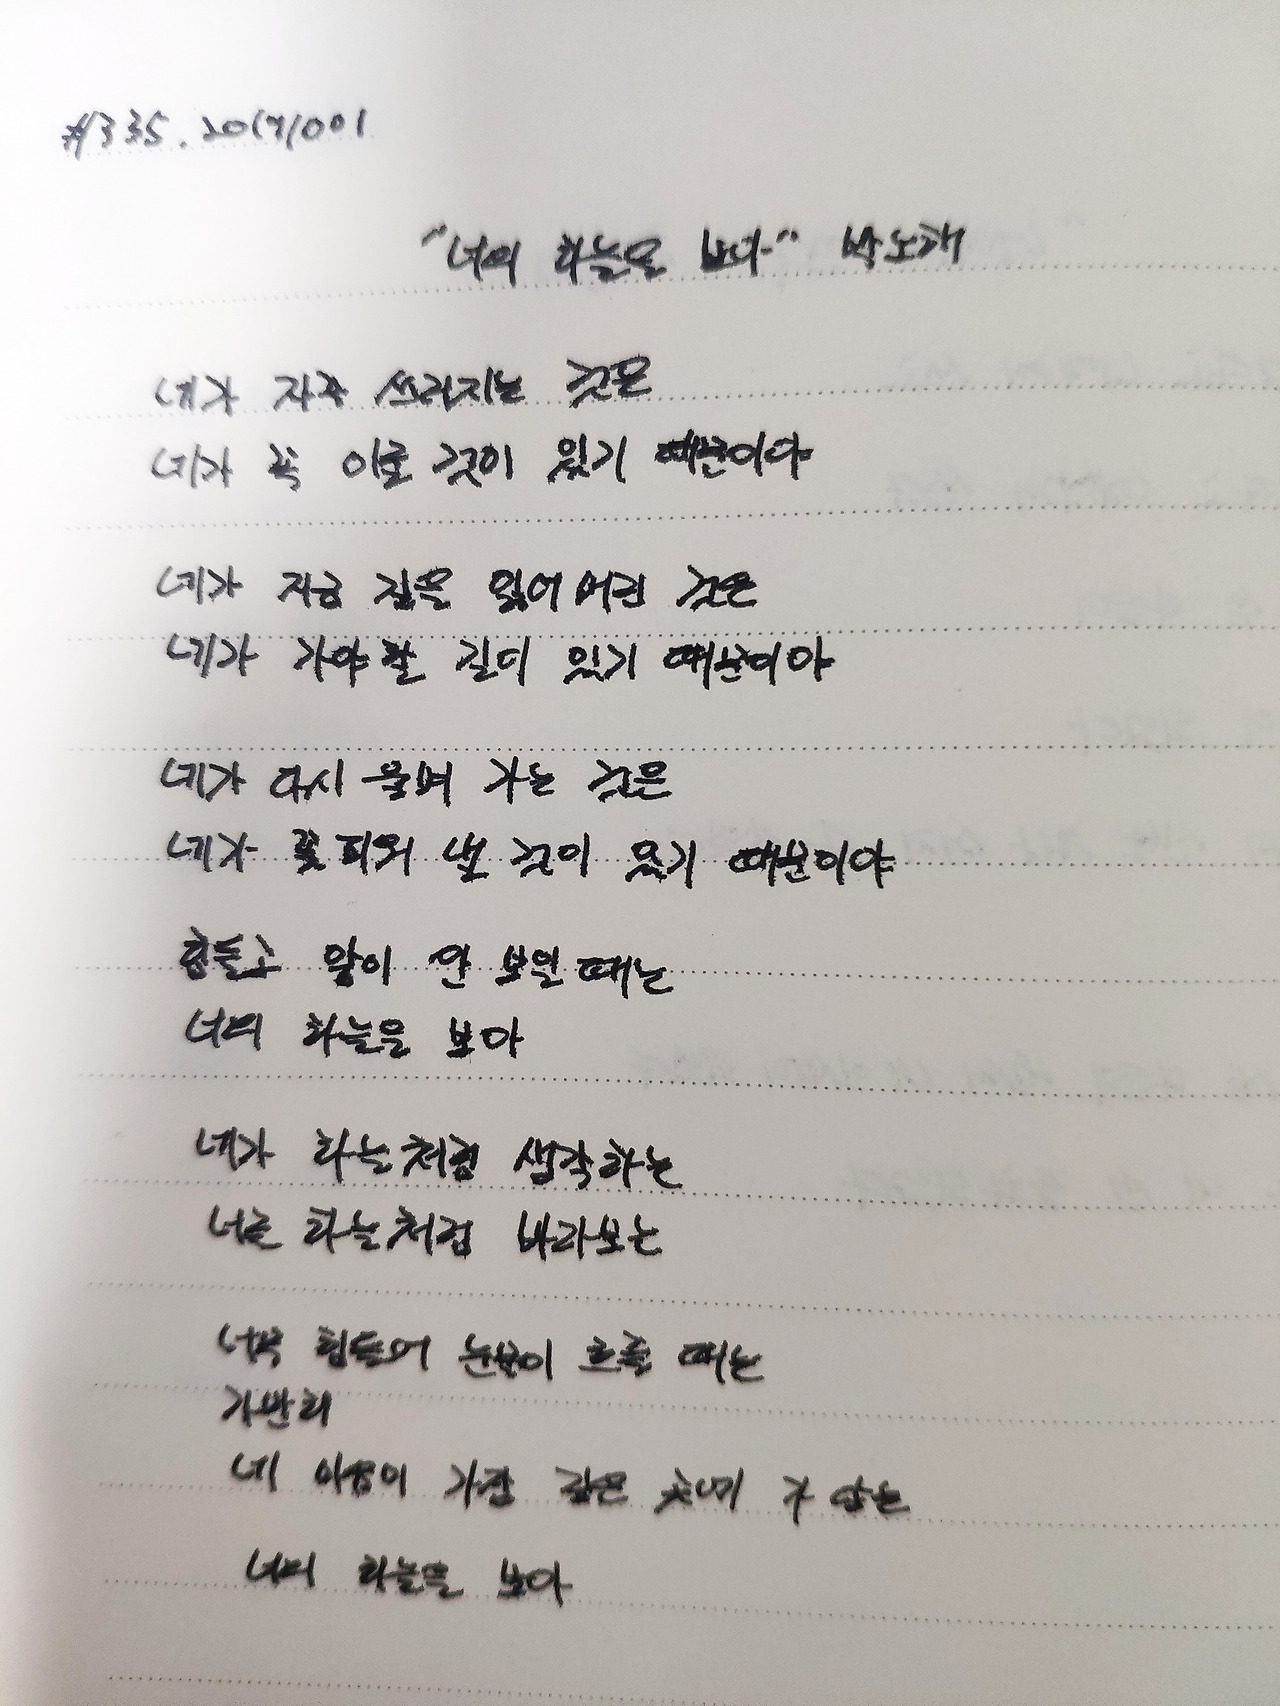 #335. 20171001
"너의 하늘을 보다" 박노해
네가 자주 쓰러지는 것은
네가 꼭 이룰 것이 있기 때문이야
네가 지금 길을 잃어버린 것은
네가 가야할 길이 있기 때문이야
네가 다시 울며 가는 것은
네가 꽃피워 낼 것이 있기 때문이야
힘들고 앞이 안 보일 때는
너의 하늘을 보아
네가 하늘처럼 생각하는
너를 하늘처럼 바라보는
너무 힘들어 눈물이 흐를 때는
가만히
네 마음이 가장 깊은
너의 하늘을 보아